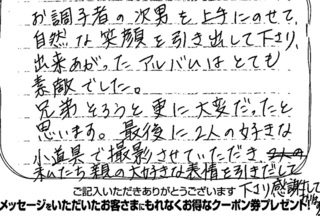 お調子者の次男を上手にのせて、
自然な笑顔を引き出して下さり、
出来あがったアルバムはとても
素敵でした。
兄弟そろうと更に大変だったと
思います。最後に2人の好きな
小道具で撮影させていただき、
私たち親の大好きな表情を引きだして
下さり感謝して
ご記入いただきありがとうございます
メッセージをいただいたお客さまにもれなくお得なクーポン券プレゼント!